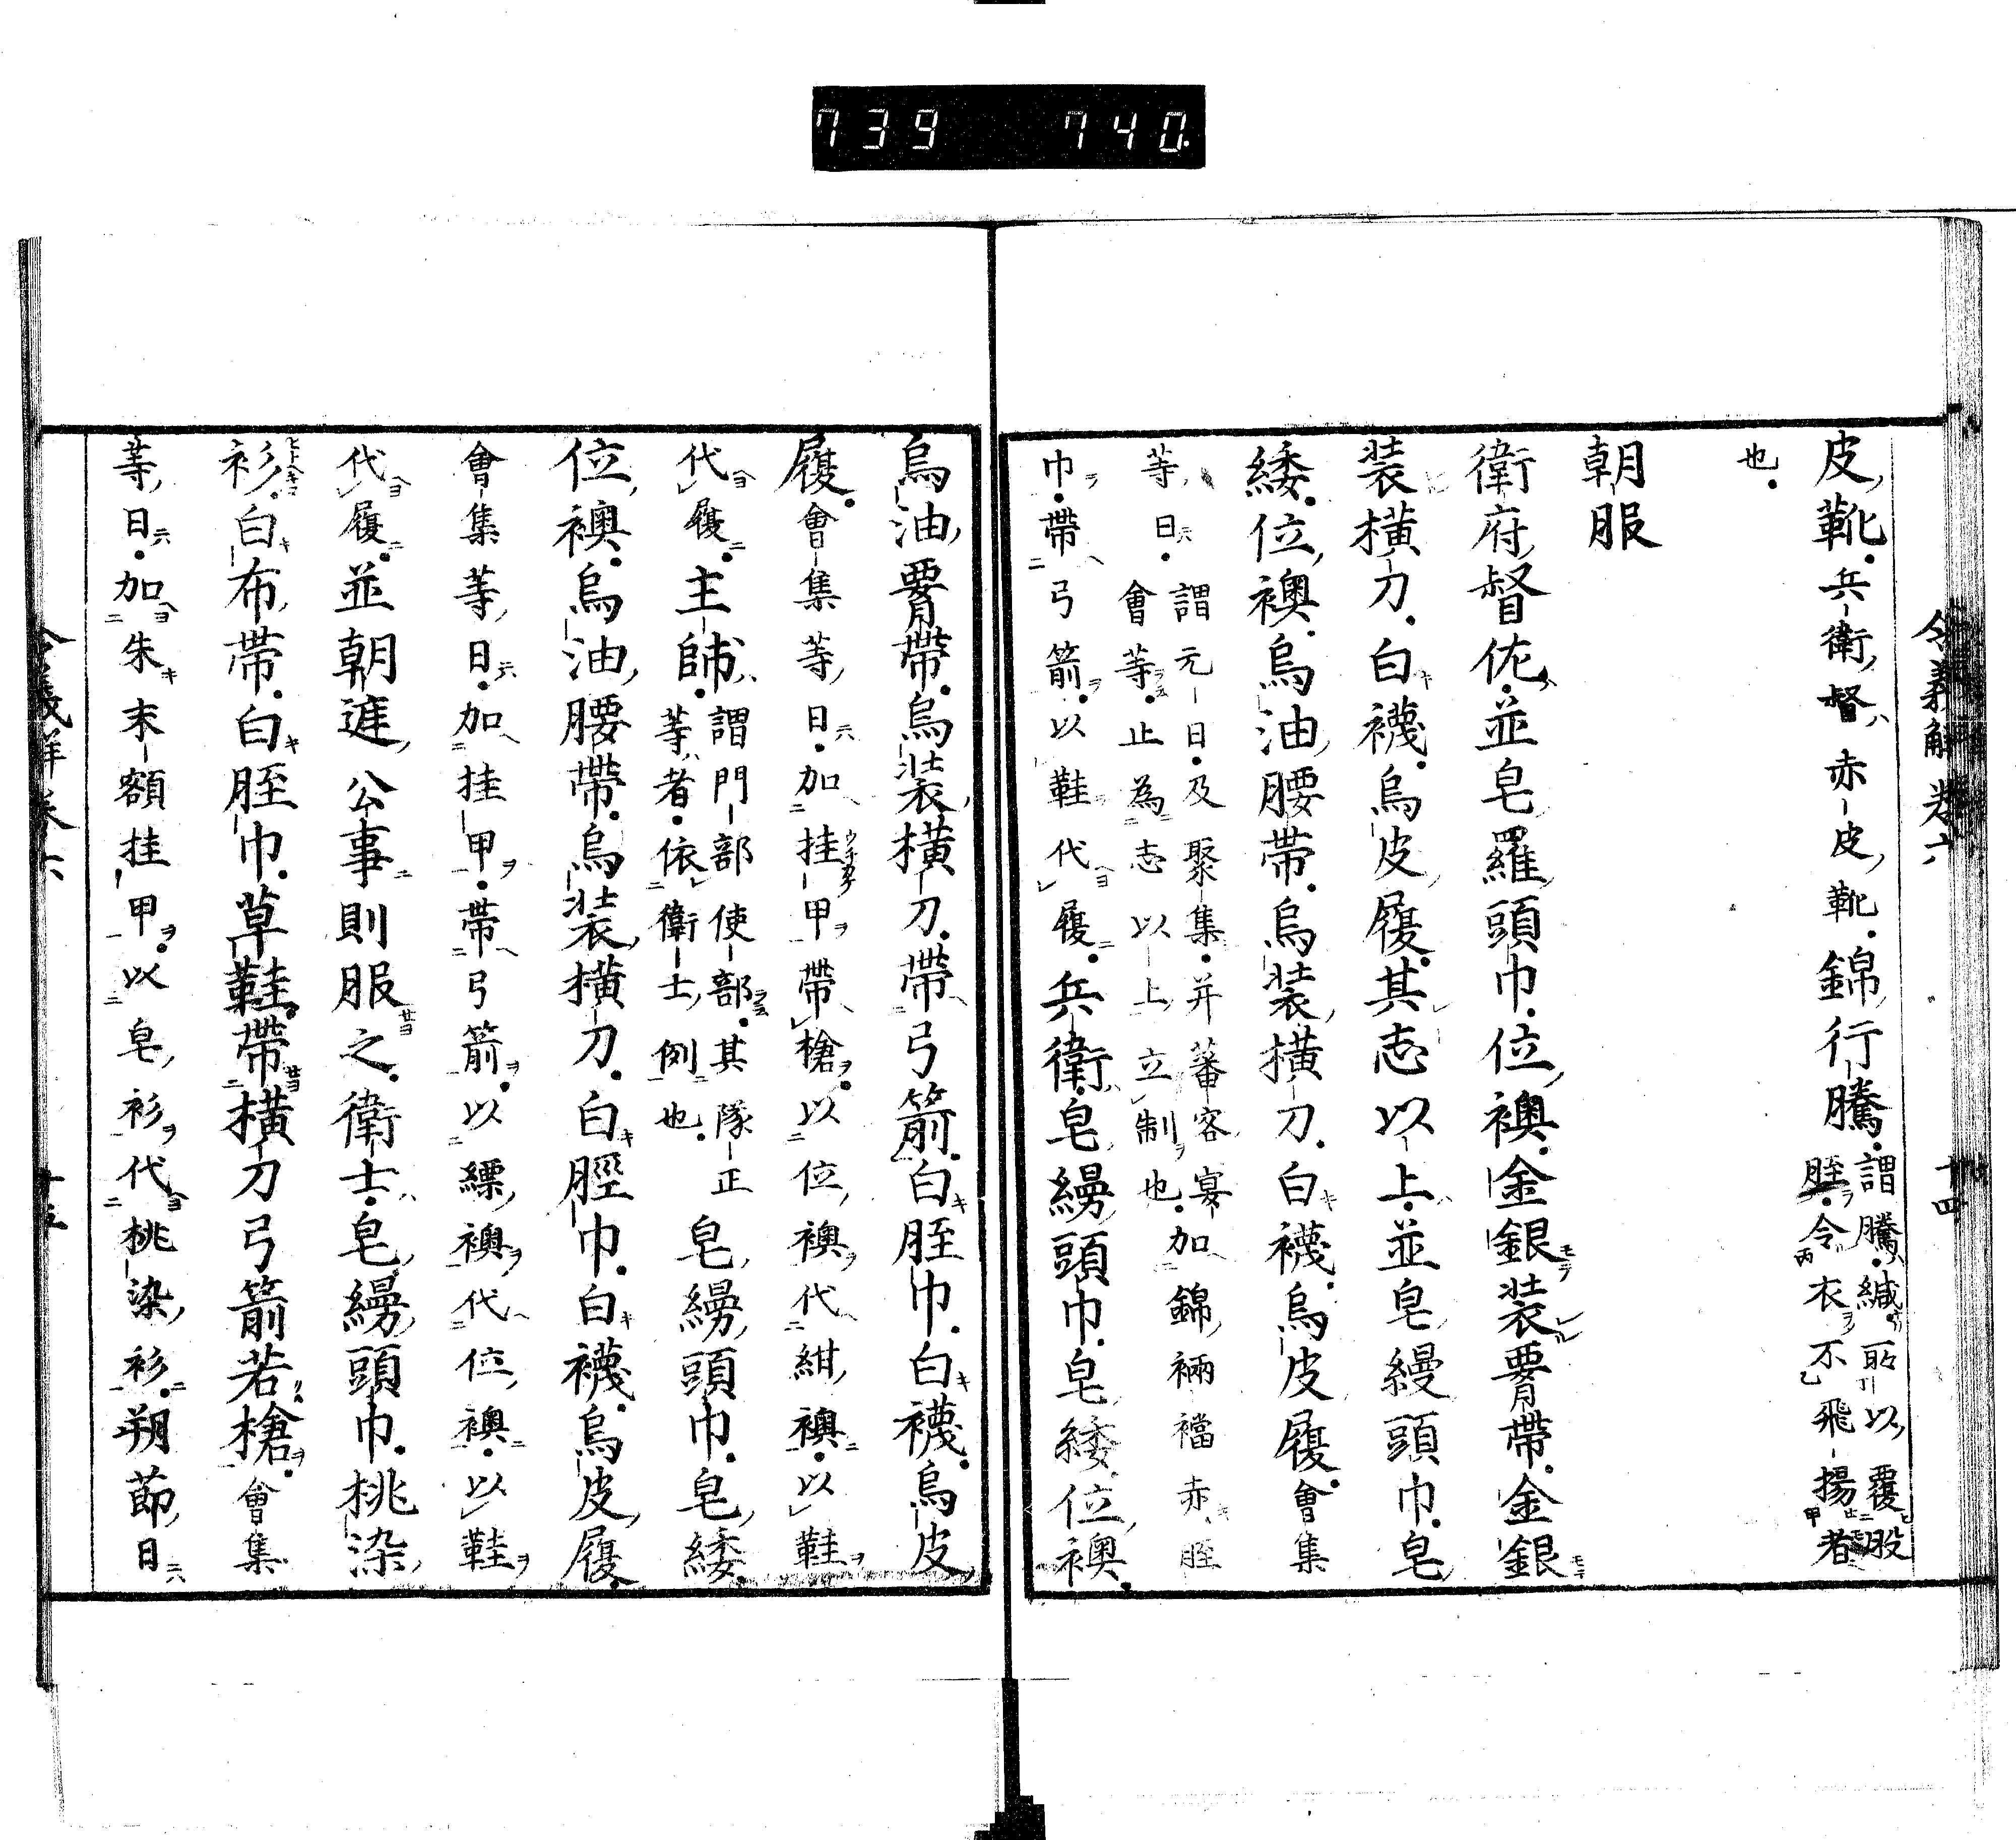 739 740
令義解卷六 十四
皮靴兵衛督赤皮靴錦行騰謂騰緘所以覆股
脛令衣不飛揚者
也
朝服
衛府督佐並皂羅頭巾位襖金銀装腰帶金銀
装橫刀白襪烏皮履其志以上並皂縵頭巾皂
緌位襖烏油腰帶烏装橫刀白襪烏皮履會集
等日謂元日及聚集并蕃客宴
會等止為志以上立制也加錦裲襠赤脛
巾帶弓箭以鞋代履兵衛皂縵頭巾皂緌位襖
烏油腰帶烏装橫刀帶弓箭白脛巾白襪烏皮
履會集等日加挂甲帶槍以位襖代紺襖以鞋
代履主帥謂門部使部其隊正
等者依衛士例也皂縵頭巾皂緌
位襖烏油腰帶烏装橫刀白脛巾白襪烏皮履
會集等日加挂甲帶弓箭以縹襖代位襖以鞋
代履並朝庭公事則服之衛士皂縵頭巾桃染
衫白布帶白脛巾草鞋帶橫刀弓箭若槍會集
等日加朱末額挂甲以皂衫代桃染衫朔節日